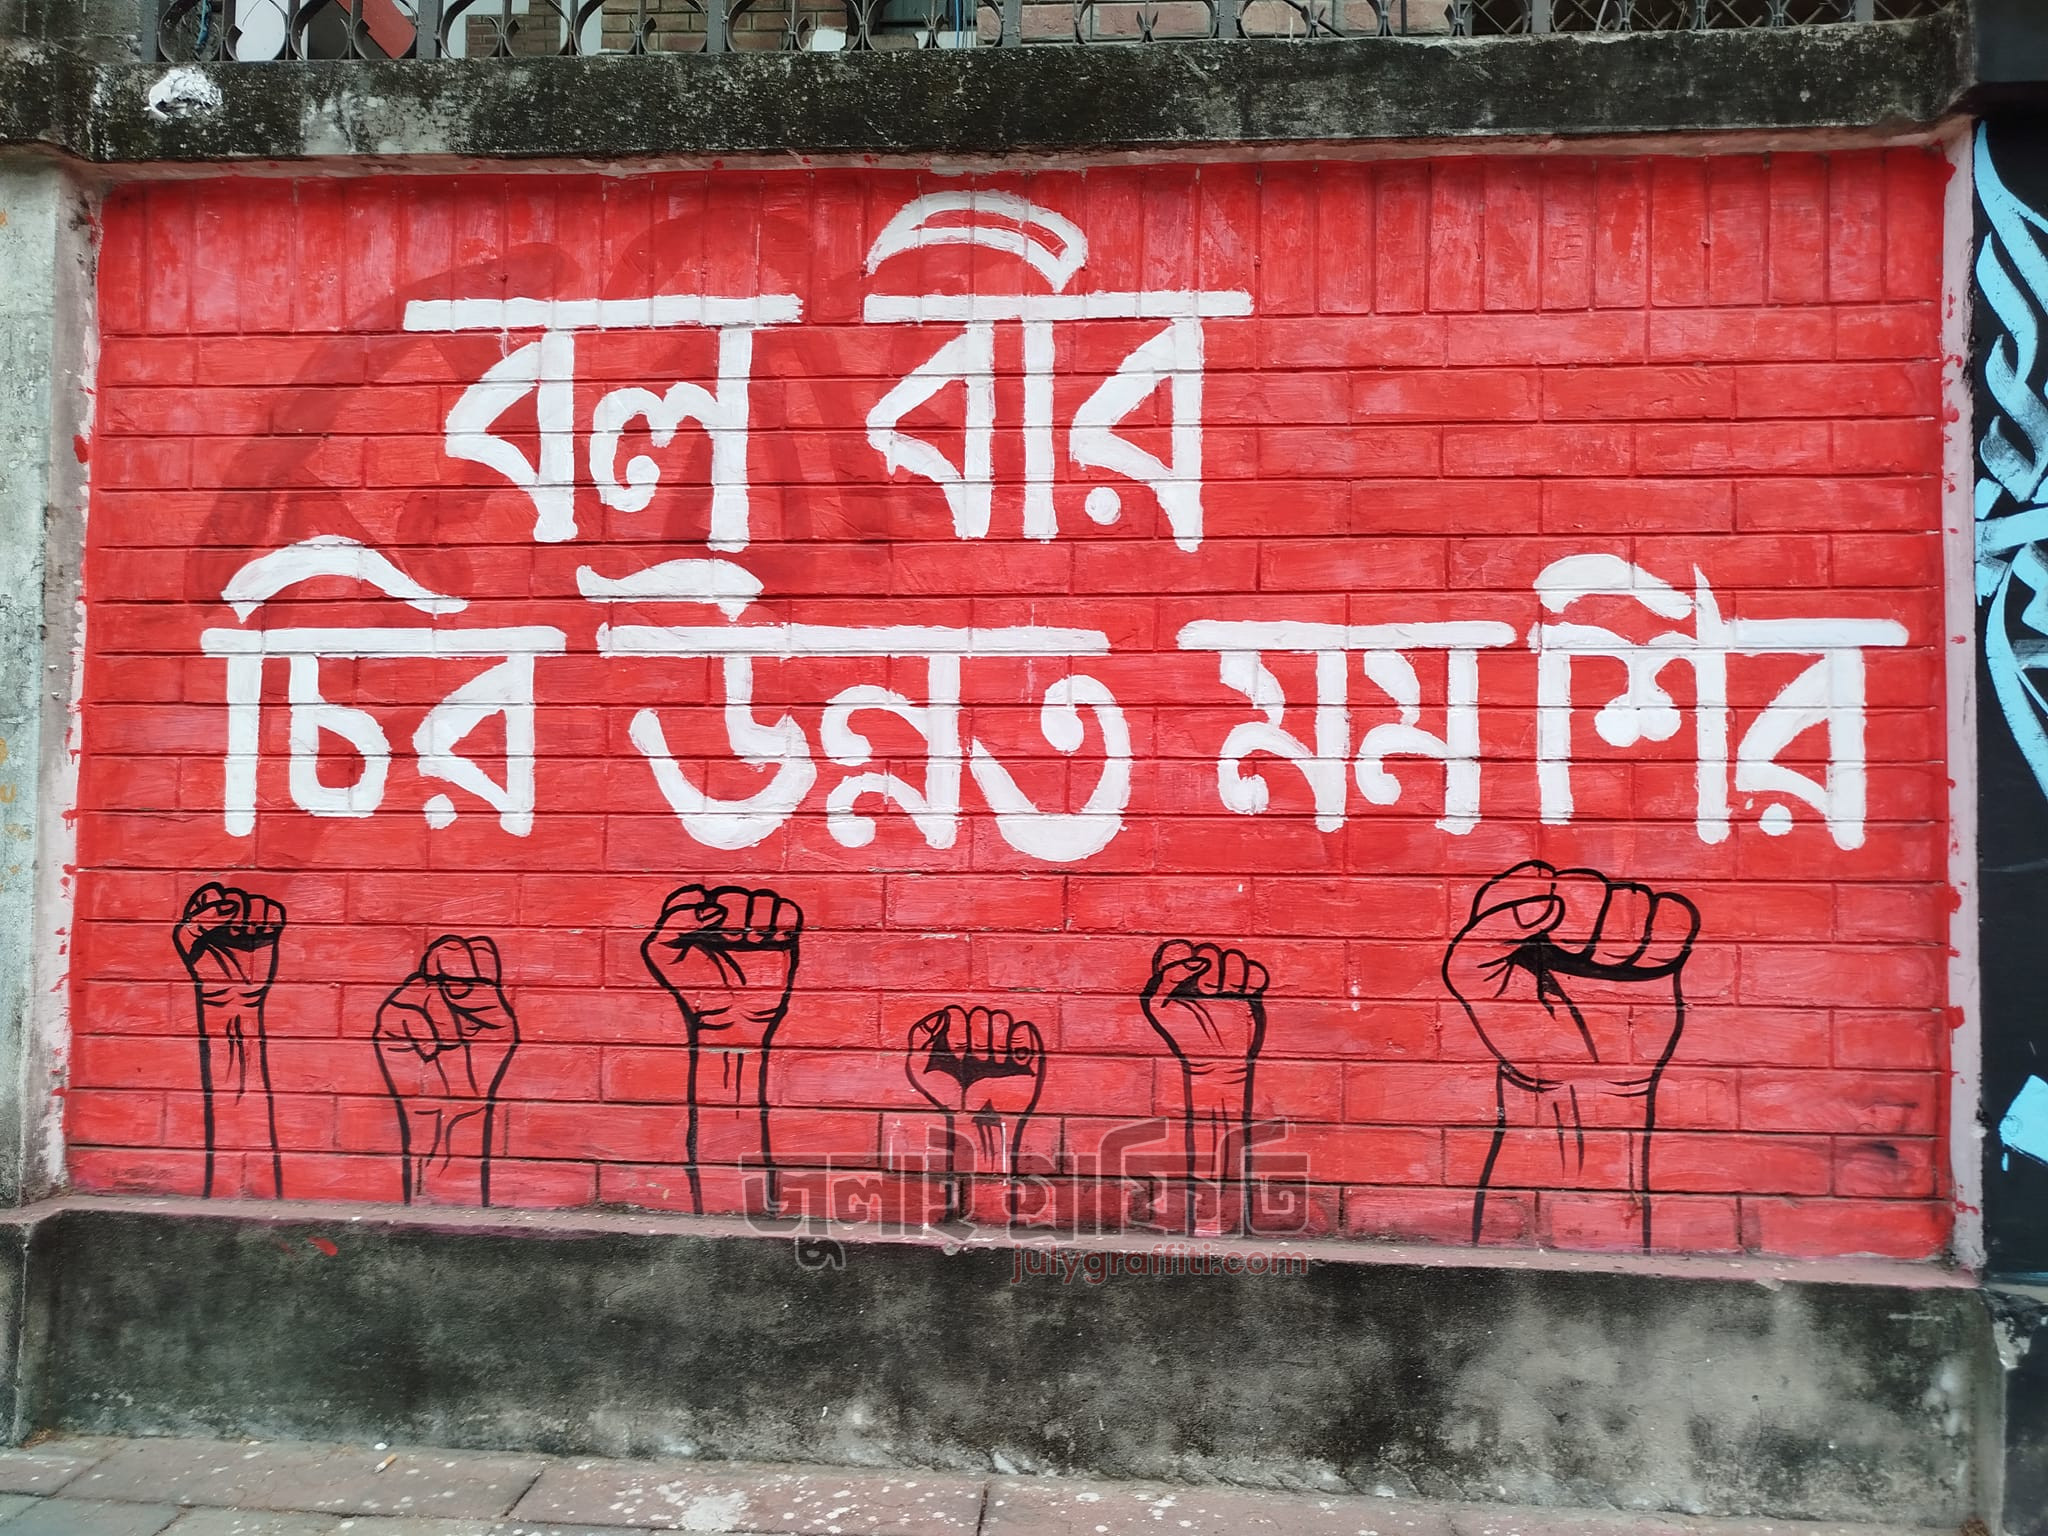 বল বীর
চির উন্নত মম শির
জুলাই গ্রাফিতি
julygraffiti.com